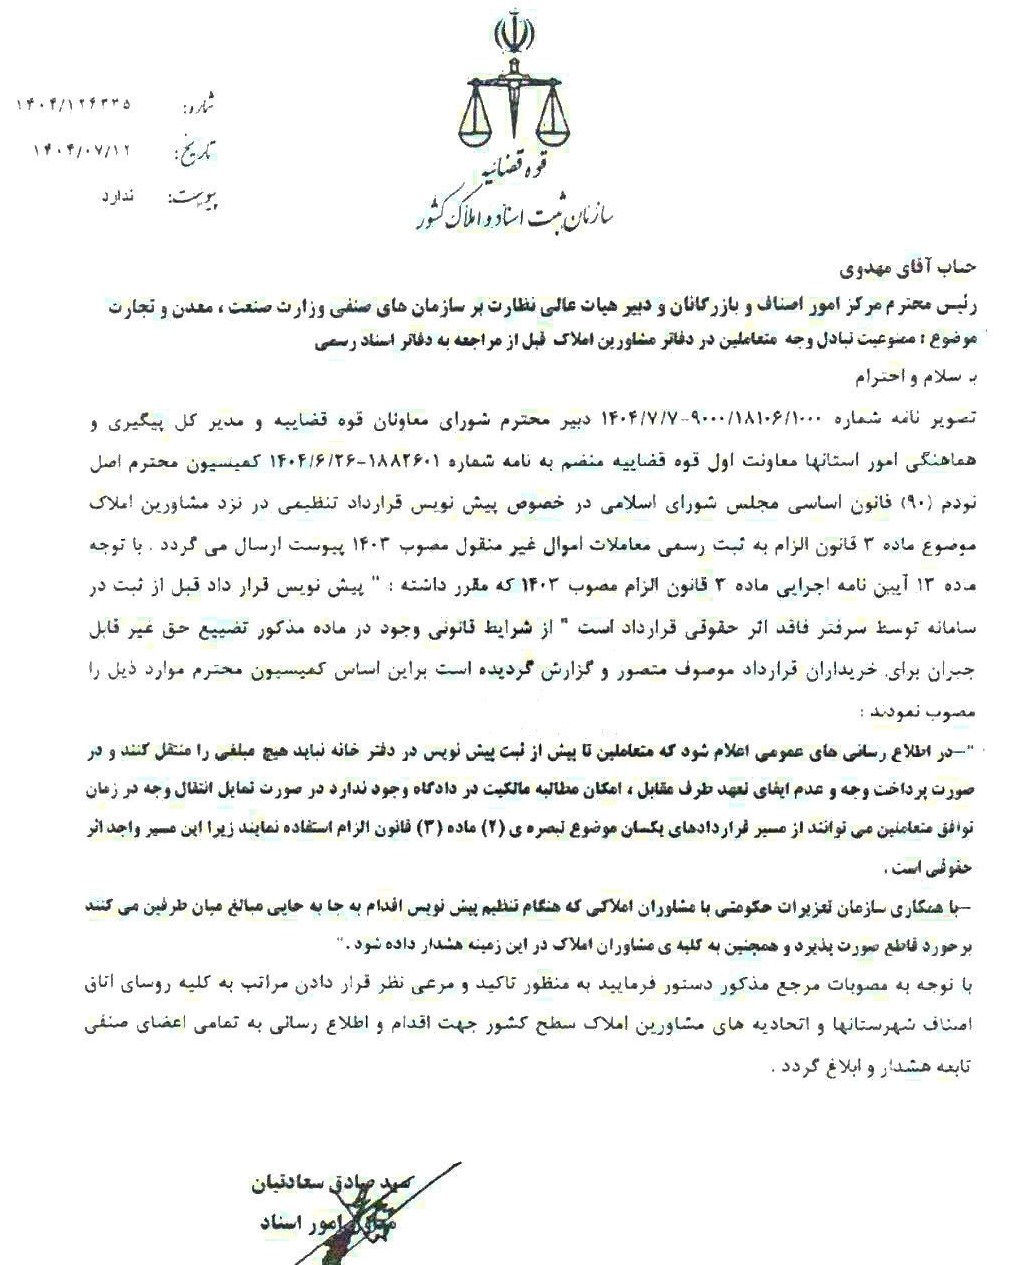 شماره: ۱۴۰۴/۱۲۴۳۳۵
تاریخ: ۱۴۰۴/۰۷/۱۲
پیوست: ندارد
قوه قضائیه
سازمان ثبت اسناد و املاک کشور
جناب آقای مهدوی
رئیس محترم مرکز امور اصناف و بازرگانان و دبیر هیات عالی نظارت بر سازمان های صنفی وزارت صنعت ، معدن و تجارت
موضوع : ممنوعیت تبادل وجه متعاملین در دفاتر مشاورین املاک قبل از مراجعه به دفاتر اسناد رسمی
با سلام و احترام
تصویر نامه شماره ۹۰۰۰/۱۸۱۰۶/۱۰۰۰-۱۴۰۴/۷/۷ دبیر محترم شورای معاونان قوه قضاییه و مدیر کل پیگیری و
هماهنگی امور استانها معاونت اول قوه قضاییه منضم به نامه شماره ۱۸۸۲۶۰۱-۱۴۰۴/۶/۲۶ کمیسیون محترم اصل
نودم (۹۰) قانون اساسی مجلس شورای اسلامی در خصوص پیش نویس قرارداد تنظیمی در نزد مشاورین املاک
موضوع ماده ۳ قانون الزام به ثبت رسمی معاملات اموال غیر منقول مصوب ۱۴۰۳ پیوست ارسال می گردد . با توجه
ماده ۱۳ آیین نامه اجرایی ماده ۳ قانون الزام مصوب ۱۴۰۳ که مقرر داشته : " پیش نویس قرار داد قبل از ثبت در
سامانه توسط سرفتر فاقد اثر حقوقی قرارداد است " از شرایط قانونی وجود در ماده مذکور تضییع حق غیر قابل
جبران برای خریداران قرارداد موصوف متصور و گزارش گردیده است براین اساس کمیسیون محترم موارد ذیل را
مصوب نمودند :
"–در اطلاع رسانی های عمومی اعلام شود که متعاملین تا پیش از ثبت پیش نویس در دفتر خانه نباید هیچ مبلغی را منتقل کنند و در
صورت پرداخت وجه و عدم ایفای تعهد طرف مقابل ، امکان مطالبه مالکیت در دادگاه وجود ندارد در صورت تمایل انتقال وجه در زمان
توافق متعاملین می توانند از مسیر قراردادهای یکسان موضوع تبصره ی (۲) ماده (۳) قانون الزام استفاده نمایند زیرا این مسیر واجد اثر
حقوقی است .
–با همکاری سازمان تعزیرات حکومتی با مشاوران املاکی که هنگام تنظیم پیش نویس اقدام به جا به جایی مبالغ میان طرفین می کنند
برخورد قاطع صورت پذیرد و همچنین به کلیه ی مشاوران املاک در این زمینه هشدار داده شود ."
با توجه به مصوبات مرجع مذکور دستور فرمایید به منظور تاکید و مرعی نظر قرار دادن مراتب به کلیه روسای اتاق
اصناف شهرستانها و اتحادیه های مشاورین املاک سطح کشور جهت اقدام و اطلاع رسانی به تمامی اعضای صنفی
تابعه هشدار و ابلاغ گردد .
سید صادق سعادتیان
معاون امور اسناد